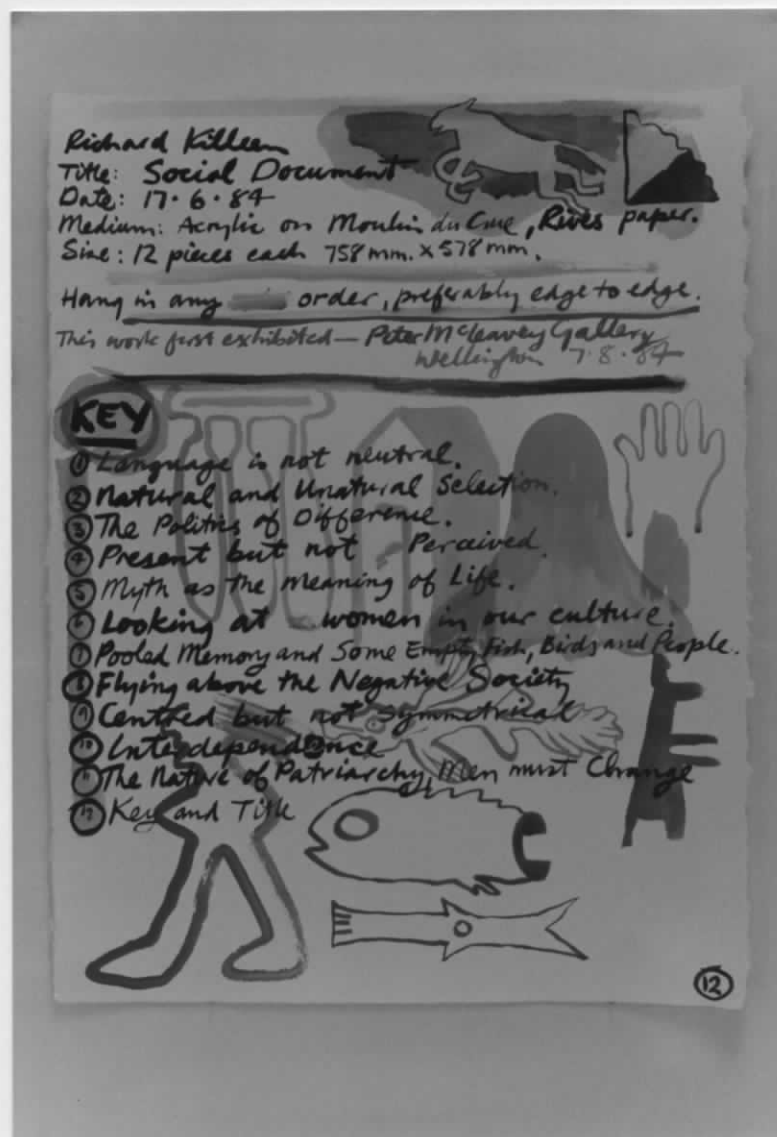 Richard Killeen
Title: Social Document
Date: 17·6·84
Medium: Acrylic on Moulin du Gue, Rives paper.
Size: 12 pieces each 758mm. x 578mm.
Hang in any order, preferably edge to edge.
This work first exhibited — Peter McLeavey Gallery
Wellington 7·8·84
KEY
① Language is not neutral.
② Natural and Unatural Selection.
③ The Politics of Difference.
④ Present but not Perceived.
⑤ Myth as the meaning of Life.
⑥ Looking at women in our culture.
⑦ Pooled Memory and Some Empty Fish, Birds and People.
⑧ Flying above the Negative Society
⑨ Centred but not symmetrical
⑩ Interdependence
⑪ The Nature of Patriarchy, Men must Change
⑫ Key and Title
⑫